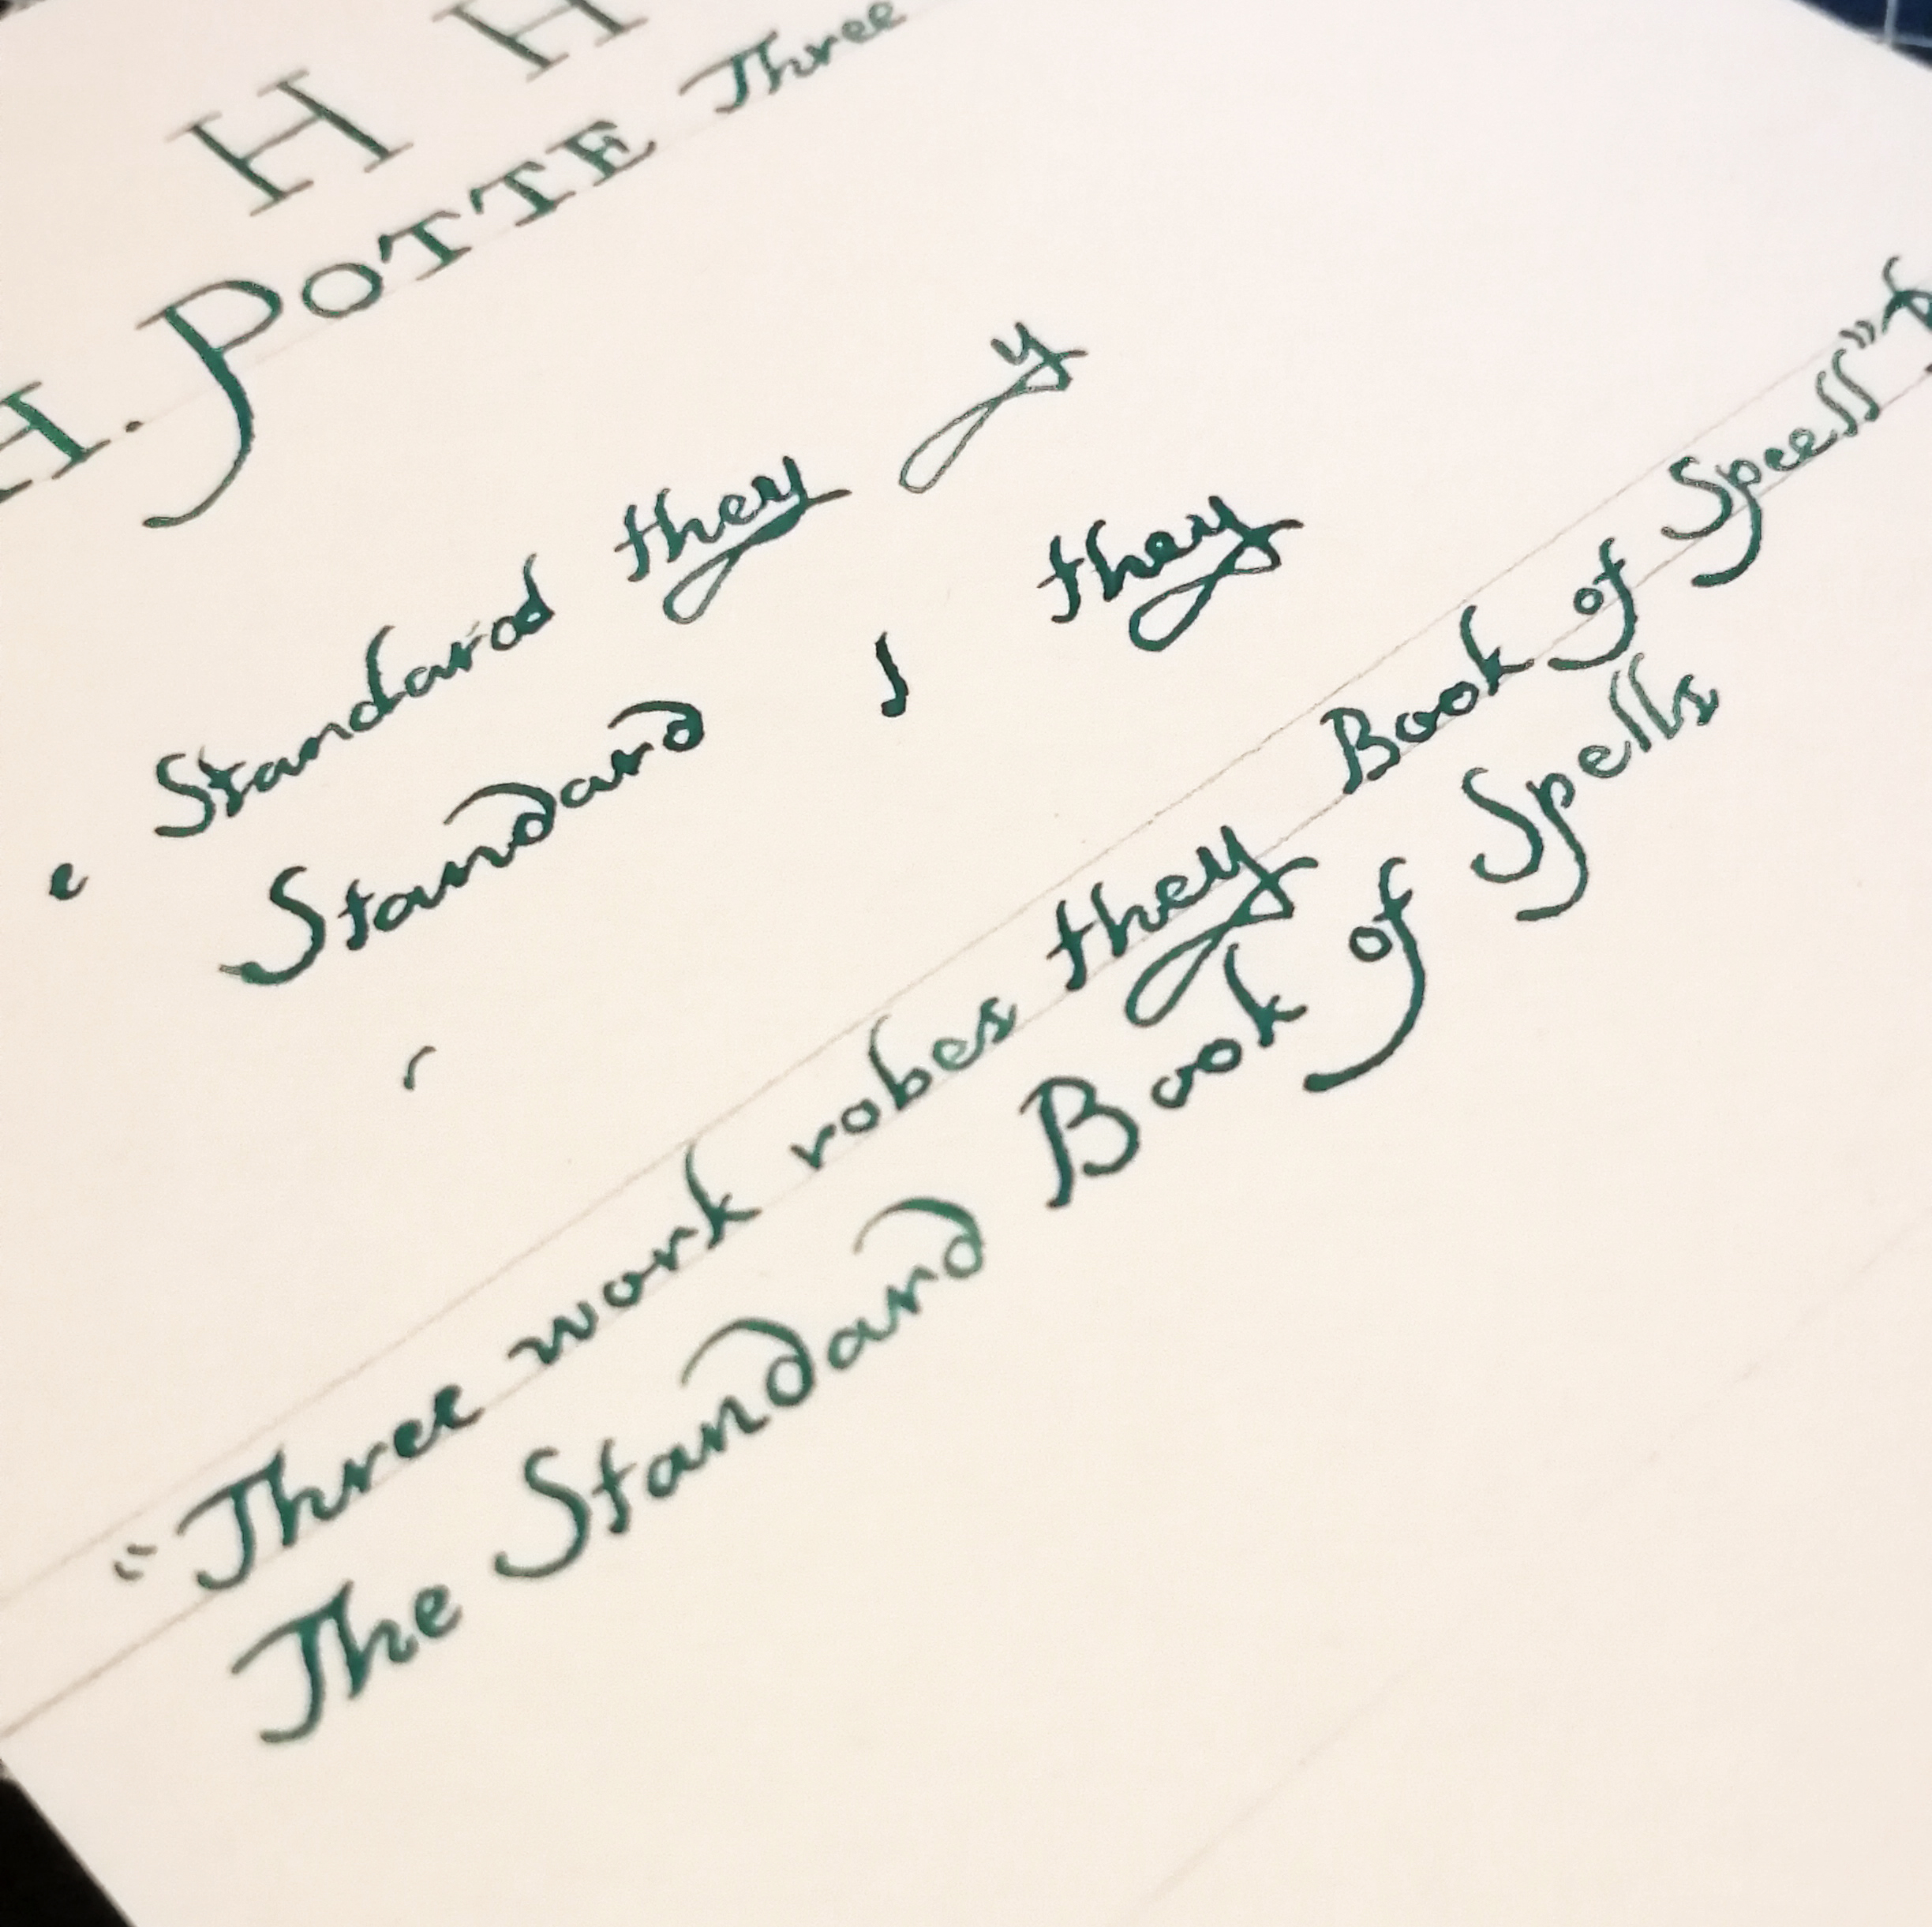 H H
H. POTTE Three
y
Standarod they
they
e Standard J
"Three work robes they Book of Speell"
The Standard Book of Spells